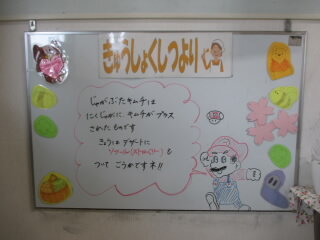 きゅうしょくしつより
じゃがぶたキムチは
にくじゃがに、キムチがプラス
されたものです
きょうは デザートに
ソフール(ストロベリー)も
ついて ごうかですネ!!